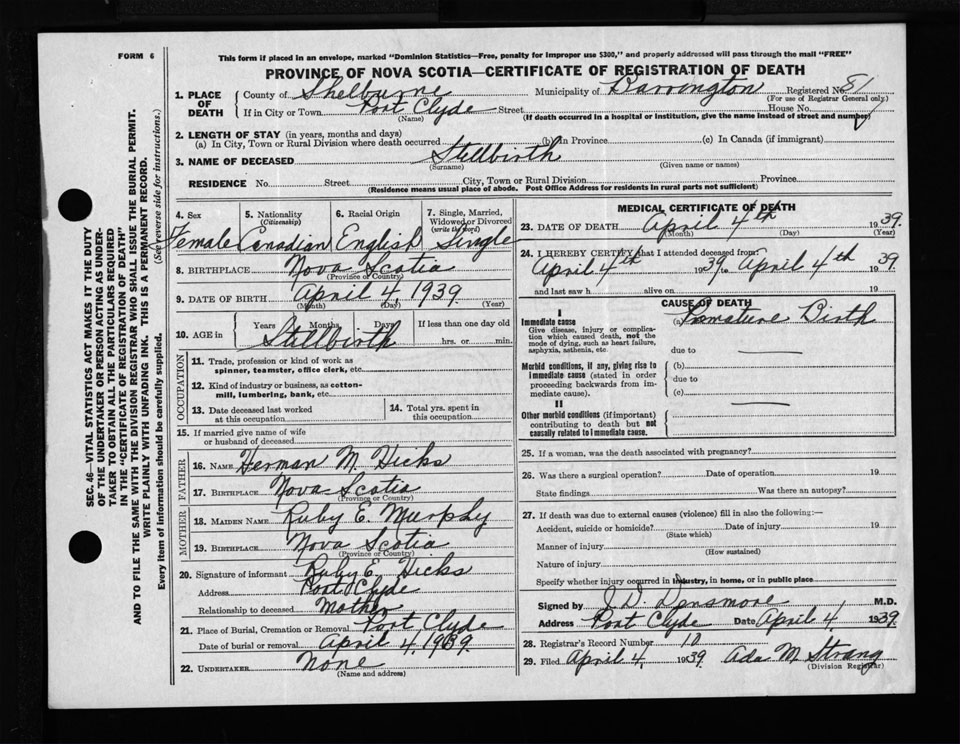 FORM 6
This form if placed in an envelope, marked "Dominion Statistics—Free, penalty for improper use $300," and properly addressed will pass through the mail "FREE"
PROVINCE OF NOVA SCOTIA—CERTIFICATE OF REGISTRATION OF DEATH
1. PLACE OF DEATH County of Shelburne Municipality of Barrington Registered No. 81
(For use of Registrar General only)
If in City or Town Port Clyde Street House No.
(Name) (If death occurred in a hospital or institution, give the name instead of street and number)
2. LENGTH OF STAY (in years, months and days)
(a) In City, Town or Rural Division where death occurred (b) In Province (c) In Canada (if immigrant)
3. NAME OF DECEASED Stillbirth
(Surname) (Given name or names)
RESIDENCE No. Street City, Town or Rural Division Province
(Residence means usual place of abode. Post Office Address for residents in rural parts not sufficient)
4. Sex 5. Nationality (Citizenship) 6. Racial Origin 7. Single, Married, Widowed or Divorced (write the word)
Female Canadian English Single
8. BIRTHPLACE Nova Scotia
(Province or Country)
9. DATE OF BIRTH April 4, 1939.
(Month) (Day) (Year)
10. AGE in Years Months Days If less than one day old
Stillbirth hrs. or min.
OCCUPATION
11. Trade, profession or kind of work as spinner, teamster, office clerk, etc.
12. Kind of industry or business, as cotton-mill, lumbering, bank, etc.
13. Date deceased last worked at this occupation
14. Total yrs. spent in this occupation
15. If married give name of wife or husband of deceased
FATHER
16. NAME Herman M. Hicks
17. BIRTHPLACE Nova Scotia
(Province or Country)
MOTHER
18. MAIDEN NAME Ruby E. Murphy
19. BIRTHPLACE Nova Scotia
(Province or Country)
20. Signature of informant Ruby E. Hicks
Address Port Clyde
Relationship to deceased Mother
21. Place of Burial, Cremation or Removal Port Clyde
Date of burial or removal April 4, 1939.
22. UNDERTAKER None
(Name and address)
MEDICAL CERTIFICATE OF DEATH
23. DATE OF DEATH April 4th 1939.
(Month) (Day) (Year)
24. I HEREBY CERTIFY that I attended deceased from:
April 4th 1939 to April 4th 1939.
and last saw h alive on 19
CAUSE OF DEATH
I
Immediate cause (a) Premature Birth
Give disease, injury or complication which caused death, not the mode of dying, such as heart failure, asphyxia, asthenia, etc.
due to
Morbid conditions, if any, giving rise to immediate cause (stated in order proceeding backwards from immediate cause).
(b)
due to
(c)
II
Other morbid conditions (if important) contributing to death but not causally related to immediate cause.
25. If a woman, was the death associated with pregnancy?
26. Was there a surgical operation? Date of operation 19
State findings Was there an autopsy?
27. If death was due to external causes (violence) fill in also the following:—
Accident, suicide or homicide? Date of injury 19
(State which)
Manner of injury
(How sustained)
Nature of injury
Specify whether injury occurred in industry, in home, or in public place
Signed by J. D. Densmore M.D.
Address Port Clyde Date April 4 1939.
28. Registrar's Record Number 10
29. Filed April 4, 1939. Ada M. Strang
(Division Registrar)
SEC. 46—VITAL STATISTICS ACT MAKES IT THE DUTY
OF THE UNDERTAKER OR PERSON ACTING AS UNDER-
TAKER TO OBTAIN ALL THE PARTICULARS REQUIRED
IN THE "CERTIFICATE OF REGISTRATION OF DEATH"
AND TO FILE THE SAME WITH THE DIVISION REGISTRAR WHO SHALL ISSUE THE BURIAL PERMIT.
WRITE PLAINLY WITH UNFADING INK. THIS IS A PERMANENT RECORD.
Every item of information should be carefully supplied. (See reverse side for instructions.)